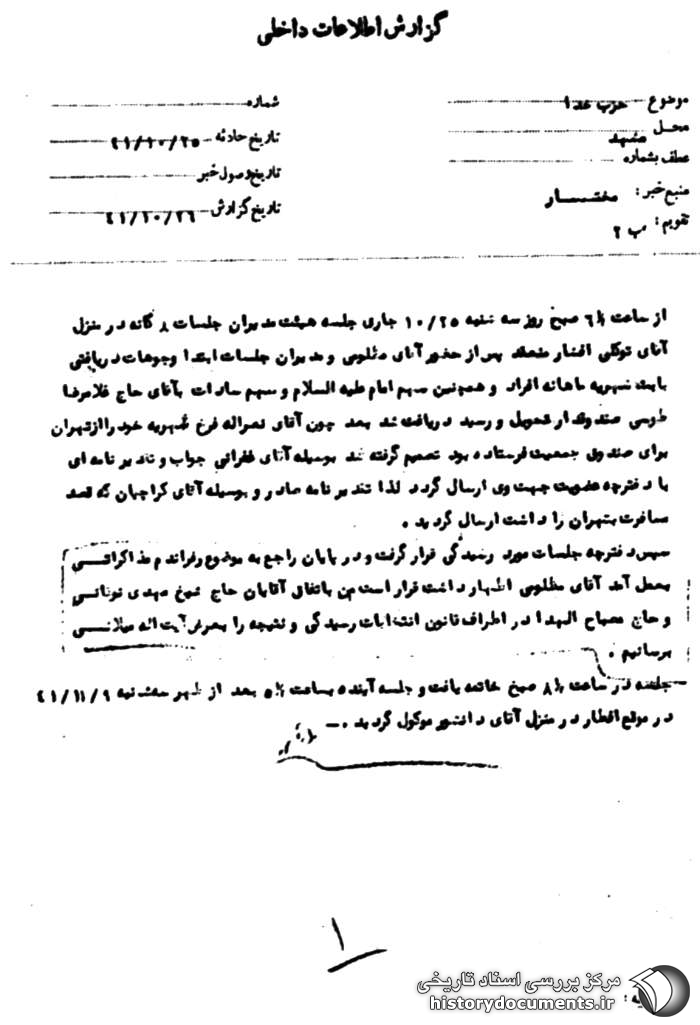 گزارش اطلاعات داخلی
موضوع حزب خدا
شماره
محل مشهد
تاریخ حادثه ۴۱/۱۰/۲۵
عطف بشماره
تاریخ وصول خبر
منبع خبر: مختسار
تاریخ گزارش ۴۱/۱۰/۲۶
تقویم: ب ۲
از ساعت ۶½ صبح روز سه شنبه ۱۰/۲۵ جاری جلسه هیئت مدیران جلسات ۸ گانه در منزل
آقای توکلی افشار منعقد پس از حضور آقای مظلومی و مدیران جلسات ابتدا وجوهات دریافتی
بابت شهریه ماهانه افراد و همچنین سهم امام علیه السلام و سهم سادات بآقای حاج غلامرضا
طوسی صندوقدار تحویل و رسید دریافت شد بعد چون آقای نصراله فرخ شهریه خود را ازتهران
برای صندوق جمعیت فرستاده بود تصمیم گرفته شد بوسیله آقای غفرانی جواب و تقدیر نامه ای
با دفترچه عضویت جهت وی ارسال گردد لذا تقدیر نامه صادر و بوسیله آقای کراچیان که قصد
مسافرت بتهران را داشت ارسال گردید .
سپس دفترچه جلسات مورد رسیدگی قرار گرفت و در پایان راجع به موضوع رفراندم مذاکراتی
بعمل آمد آقای مظلومی اظهار داشت قرار است من باتفاق آقایان حاج شیخ مهدی نوغانی
و حاج مصباح الهدا در اطراف قانون انتخابات رسیدگی و نتیجه را بعرض آیت اله میلانی
برسانیم .
جلسه در ساعت ۸½ صبح خاتمه یافت و جلسه آینده بساعت ۵½ بعد از ظهر سه‌شنبه ۴۱/۱۱/۹
در موقع افطار در منزل آقای دانشور موکول گردید .—
۱
مرکز بررسی اسناد تاریخی
historydocuments.ir